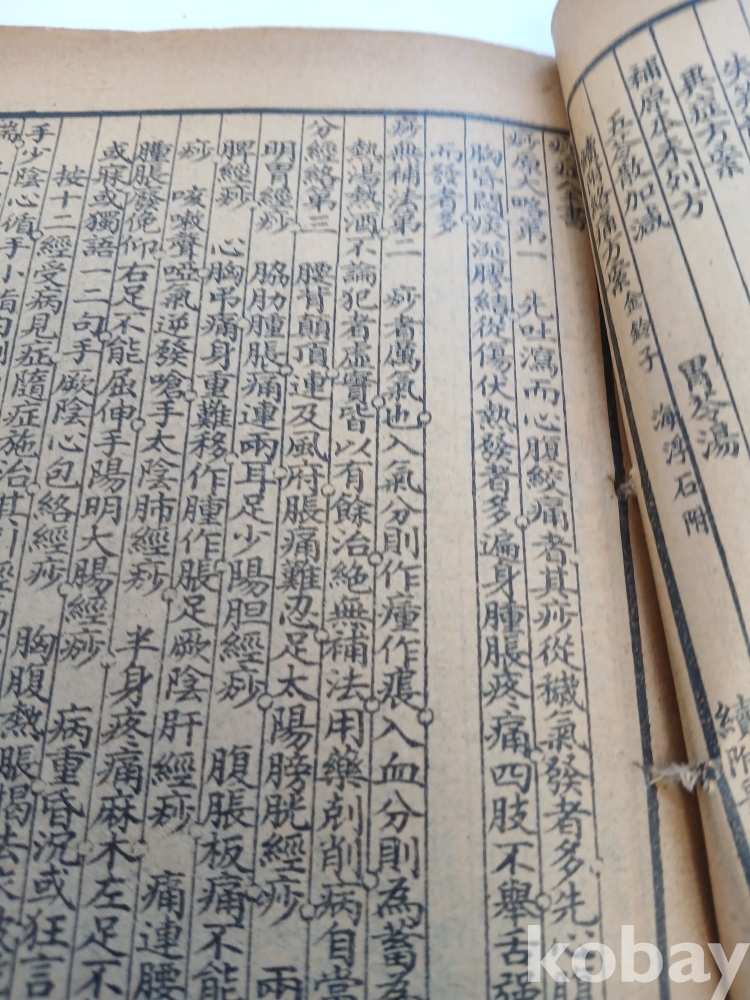 異症方案
補原本未列方
五苓散加减 胃苓湯
金鈴子 海浮石 附
痧原大略第一 先吐瀉而心腹絞痛者其痧從穢氣發者多先
胸昏悶痰涎膠結從傷伏熱發者多遍身腫脹疼痛四肢不舉舌強
而發者多
痧無補法第二 痧者厲氣也入氣分則作腫作瘬入血分則為蓄為
熱湯熱酒不論犯者虛實皆以有餘治絕無補法用藥剋削病自當
分經絡第三 腰背巔頂連及風府脹痛難忍足太陽膀胱經痧 兩
明胃經痧 脇肋腫脹痛連兩耳足少陽胆經痧 腹脹板痛不能
脾經痧 心胸吊痛身重難移作腫作脹足厥陰肝經痧 痛連腰
痧 咳嗽聲啞氣逆發嗆手太陰肺經痧 半身疼痛麻木左足不
腫脹廢俛仰右足不能屈伸手陽明大腸經痧 病重昏沉或狂言
或麻或獨語一二句手厥陰心包絡經痧 胸腹熱脹揭去衣被
按十二經受病見症隨症施治其引經
手少陰心循手小指內側
kobay